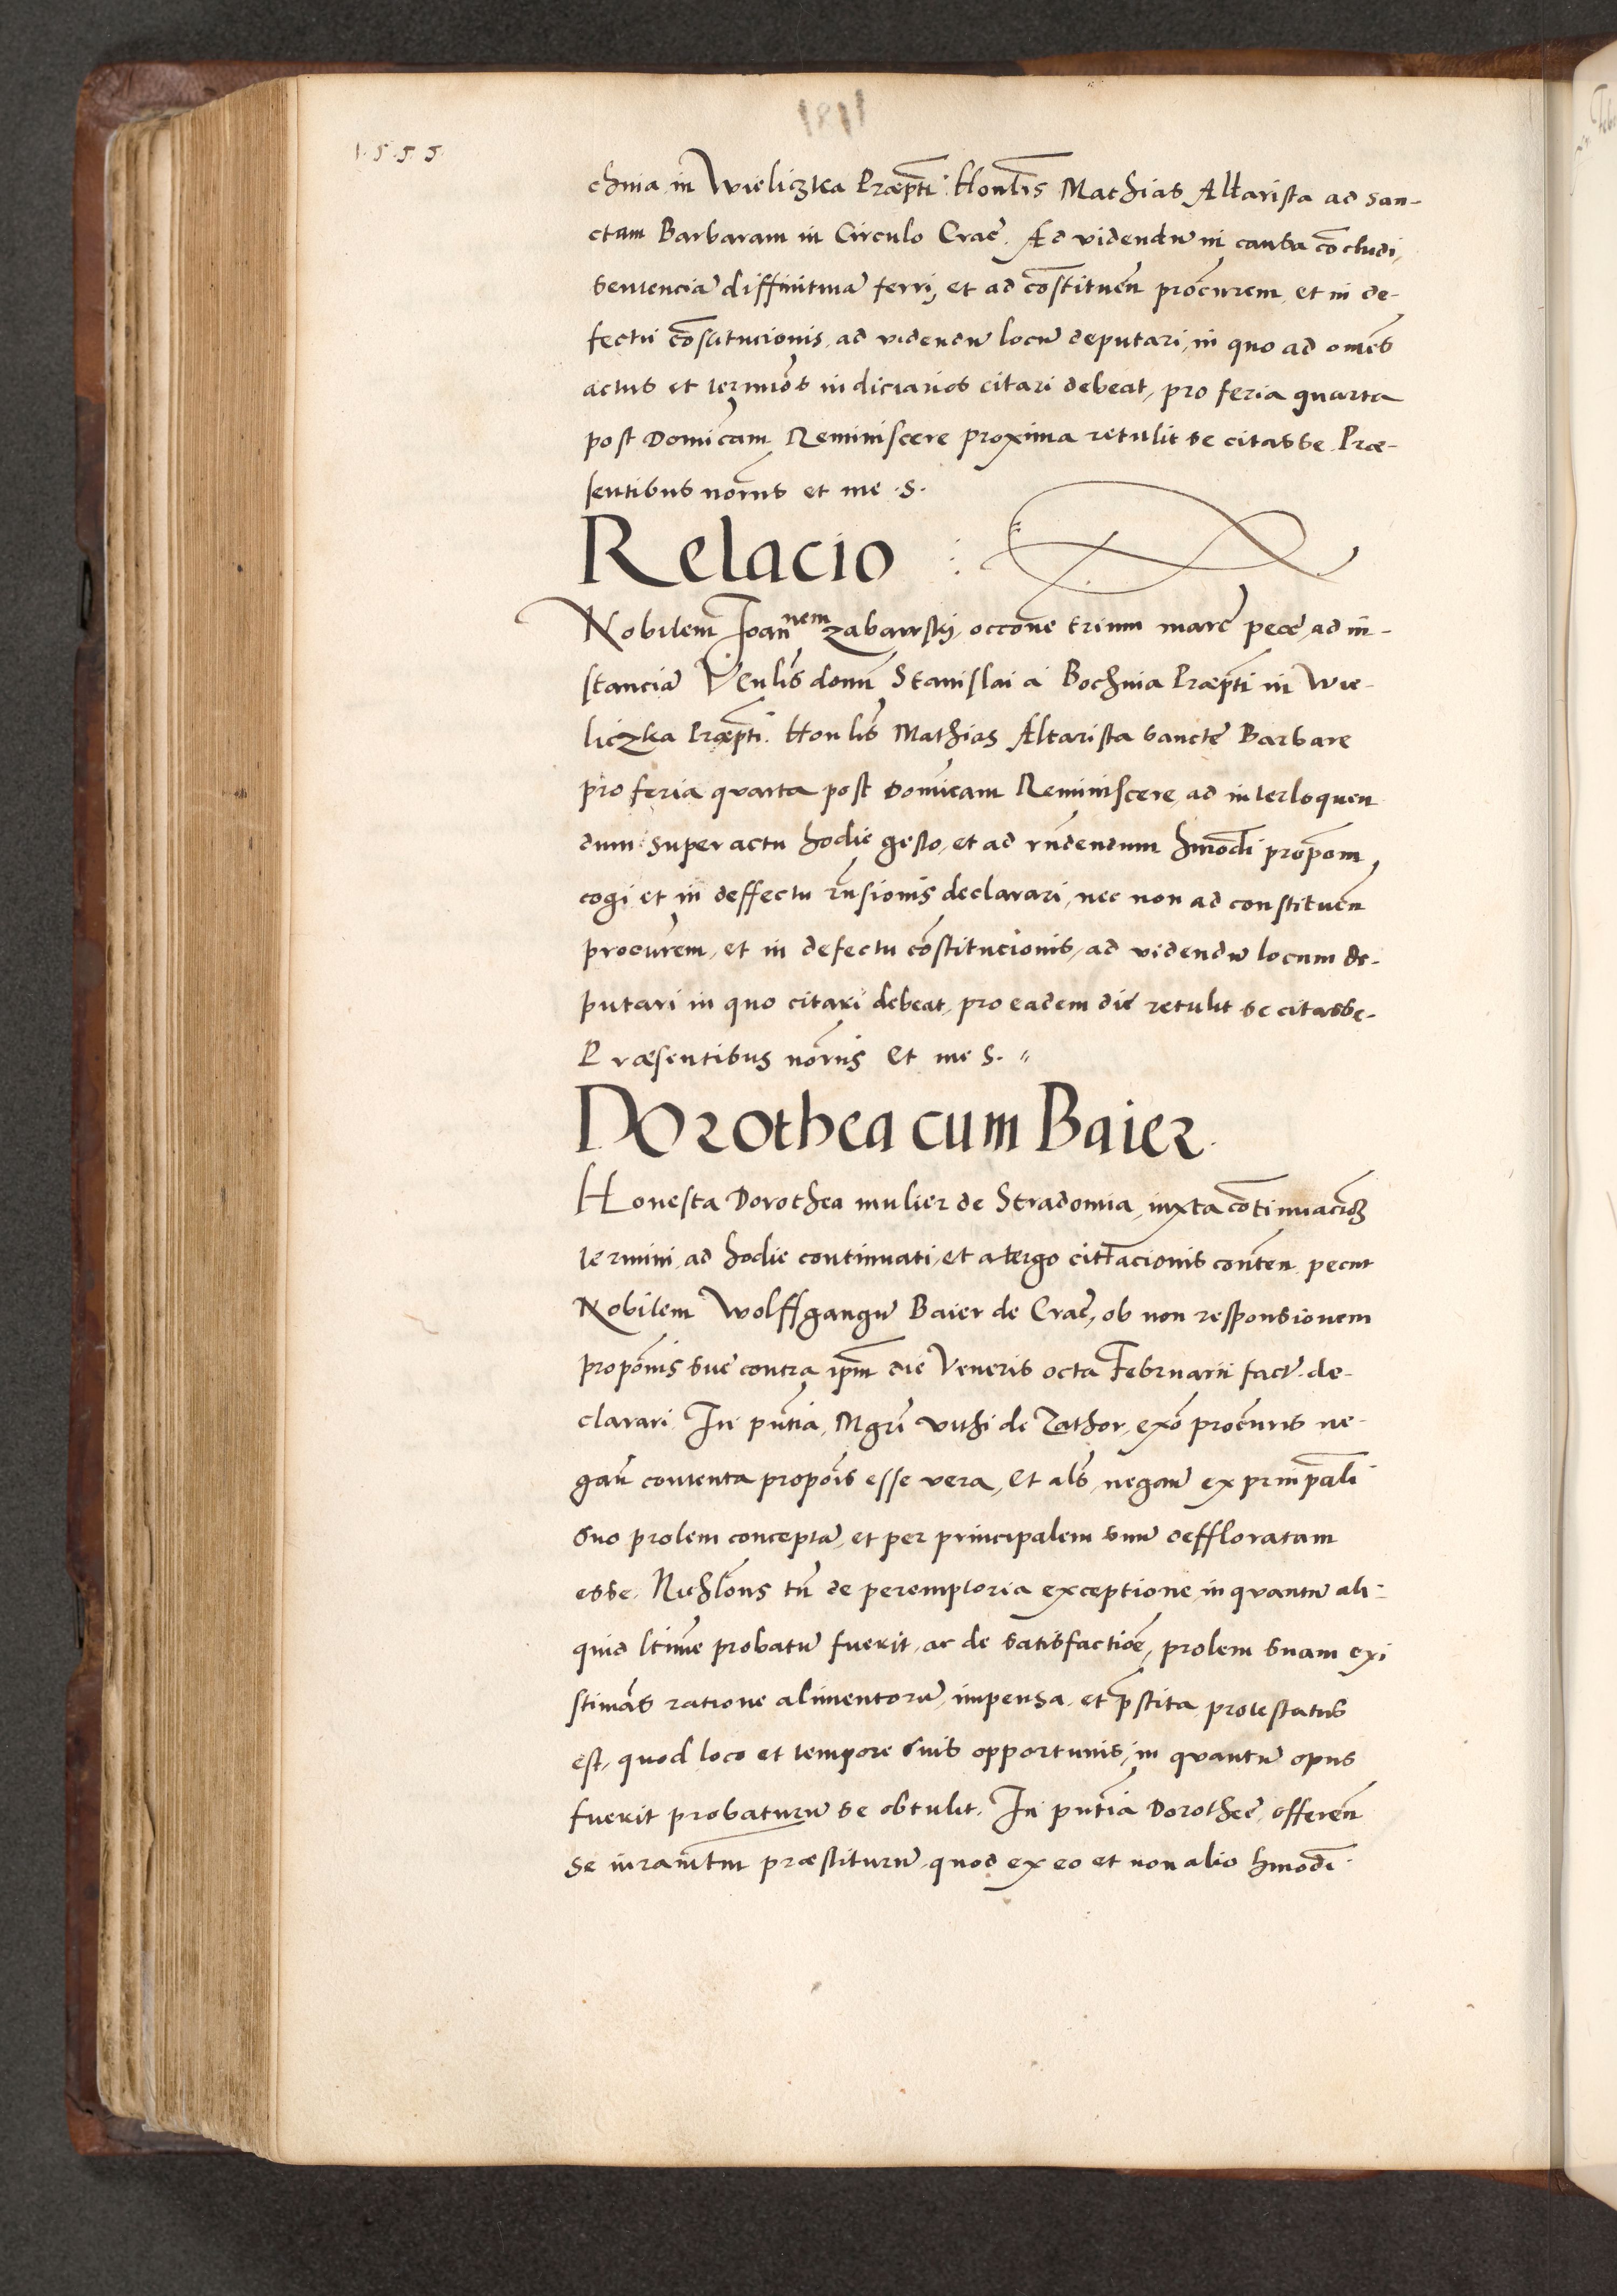 1811
1.5.5.5.
chnia in Wieliczka Præpti. Honlis Mathias Altarista ad San-
ctam Barbaram in Circulo Crac̄. Ad videndū in causa cōcludi,
sentenciā diffinitiuā ferri, et ad cōstituen̄ procūrem, et in de-
fectu cōstitucionis, ad videndū locū deputari, in quo ad om̄es
actus et termīos iudiciarios citari debeat, pro feria quarta
post Domīcam Reminiscere proxima retulit se citasse. Præ-
sentibus nōrys et me .S.
Relacio :
Nobilem Joannem Zabawskj, occōne trium marc̄ pecc̄, ad in-
stanciā Venlīs domī Stanislai a Bochnia Præpti in Wie-
liczka Præpti. Honlis Mathias Altarista sancte Barbare
pro feria quarta post domīcam Reminiscere, ad interloquen
dum super actu hodie gesto, et ad rn̄dendum hmōdi propōm
cogi et in deffectu rn̄sionis declarari, nec non ad constituen̄
procūrem, et in defectu cōstitucionis, ad videndū locum de-
putari in quo citari debeat, pro eadem die retulit se citasse.
Præsentibus nōrys et me S. //
Dorothea cum Baier.
Honesta Dorothea mulier de Stradomia, iuxta cōtinuacioēm
termini ad hodie continuati, et a tergo cittacionis conten̄ pecut
Nobilem Wolffgangū Baier de Crac̄, ob non responsionem
propōnis sue contra ipm̄ die Veneris octa Februarii fact̄ de-
clarari. In pn̄tia Mgrī Vithi de Zathor, exō procūris ne-
gan̄ contenta propōis esse vera, Et als̄ negan̄ ex prinpali
suo prolem conceptā, et per principalem suū deffloratam
esse. Nichlōns tn̄ de peremptoria exceptione, in quantū ali-
quid ltīme probatū fuerit, ac de satisfactiōe, prolem suam exi
stimās ratione alimentorū, impensa et p̄stita protestatus
est, quod loco et tempore suis opportunis, in quantū opus
fuerit probaturū se obtulit. In pn̄tia Dorothee, offeren̄
se iuramtm̄ præstiturū, quod ex eo et non alio hmōdi